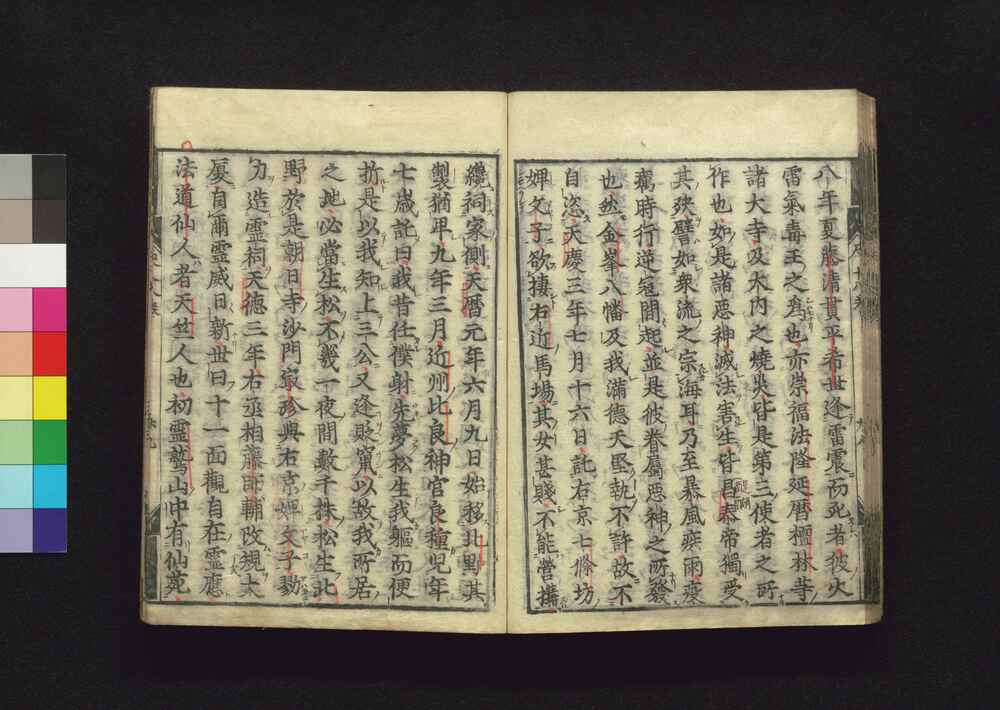 八年夏藤清貫平希世逢雷震而死者彼火
雷氣毒王之為也亦崇福法隆延曆檀林等
諸大寺及大内之燒失皆是第三使者之所
作也如是諸惡神滅法害生皆目帝獨受
其殃譬如衆流之宗海耳乃至暴風疾雨
時行逆冦間起並是彼眷屬惡神之所發
也然金峯八幡及我滿德天堅執不許故不
自恣天慶三年七月十六日託右京七條坊
婢文子欲棲右近馬場其女甚賤不能營構
祠家側天暦元年六月九日始移北野其
製猶卑九年三月近州比良神官良種兒年
七歳託曰我昔仕僕射先夢松生我軀而便
折是以我知上三公又逢貶竄以故我所居
之地必當生松不幾一夜間數千株松生北
野於是朝日寺沙門寂珍與右京婢文子勠
力造靈祠天德三年右丞相藤師輔改規大
厦自爾靈威日新世曰十一面觀自在靈應
法道仙人者天竺人也初靈鷲山中有仙苑